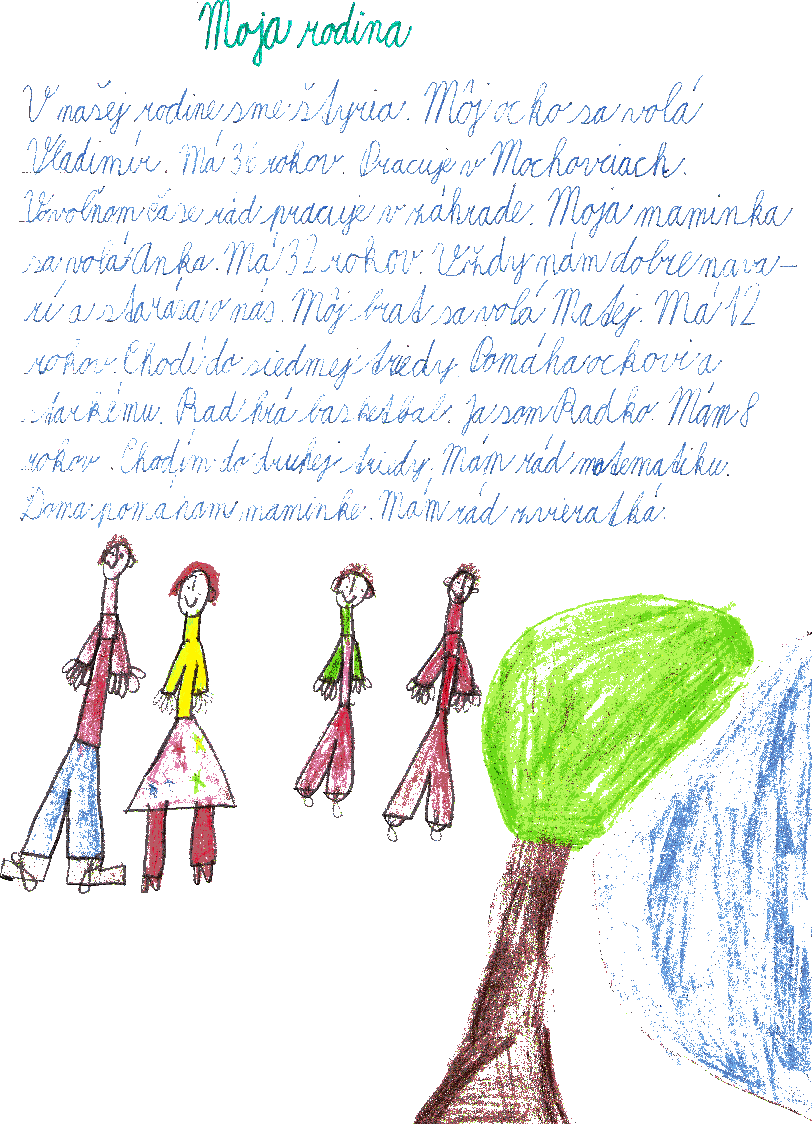 Moja rodina
V našej rodine sme štyria. Môj ocko sa volá
Vladimír. Má 36 rokov. Pracuje v Mochovciach.
Vo voľnom čase rád pracuje v záhrade. Moja maminka
sa volá Anka. Má 32 rokov. Vždy nám dobre nava-
rí a stará sa o nás. Môj brat sa volá Matej. Má 12
rokov. Chodí do siedmej triedy. Pomáha ockovi a
starkému. Rad hrá basketbal. Ja som Radko. Mám 8
rokov. Chodím do druhej triedy. Mám rád matematiku.
Doma pomáham maminke. Mám rád zvieratká.